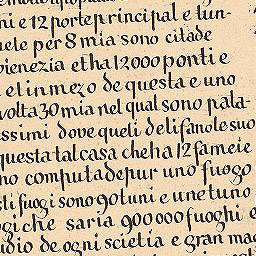 ni e 12 porte principal e tun-
uele per 8 mia sono citade
pienezia et ha 12000 ponti e
et in mezo de questa e uno
volta 30 mia nel qual sono pala-
ssimi dove queli deli fano le suo
questa tal casa che ha 12 fameie
no computade pur uno fuogo
sti fuogi sono 90 tuni e une tuno
ogi che saria 900000 fuoghi e
udio de ogni scietia e gran mad